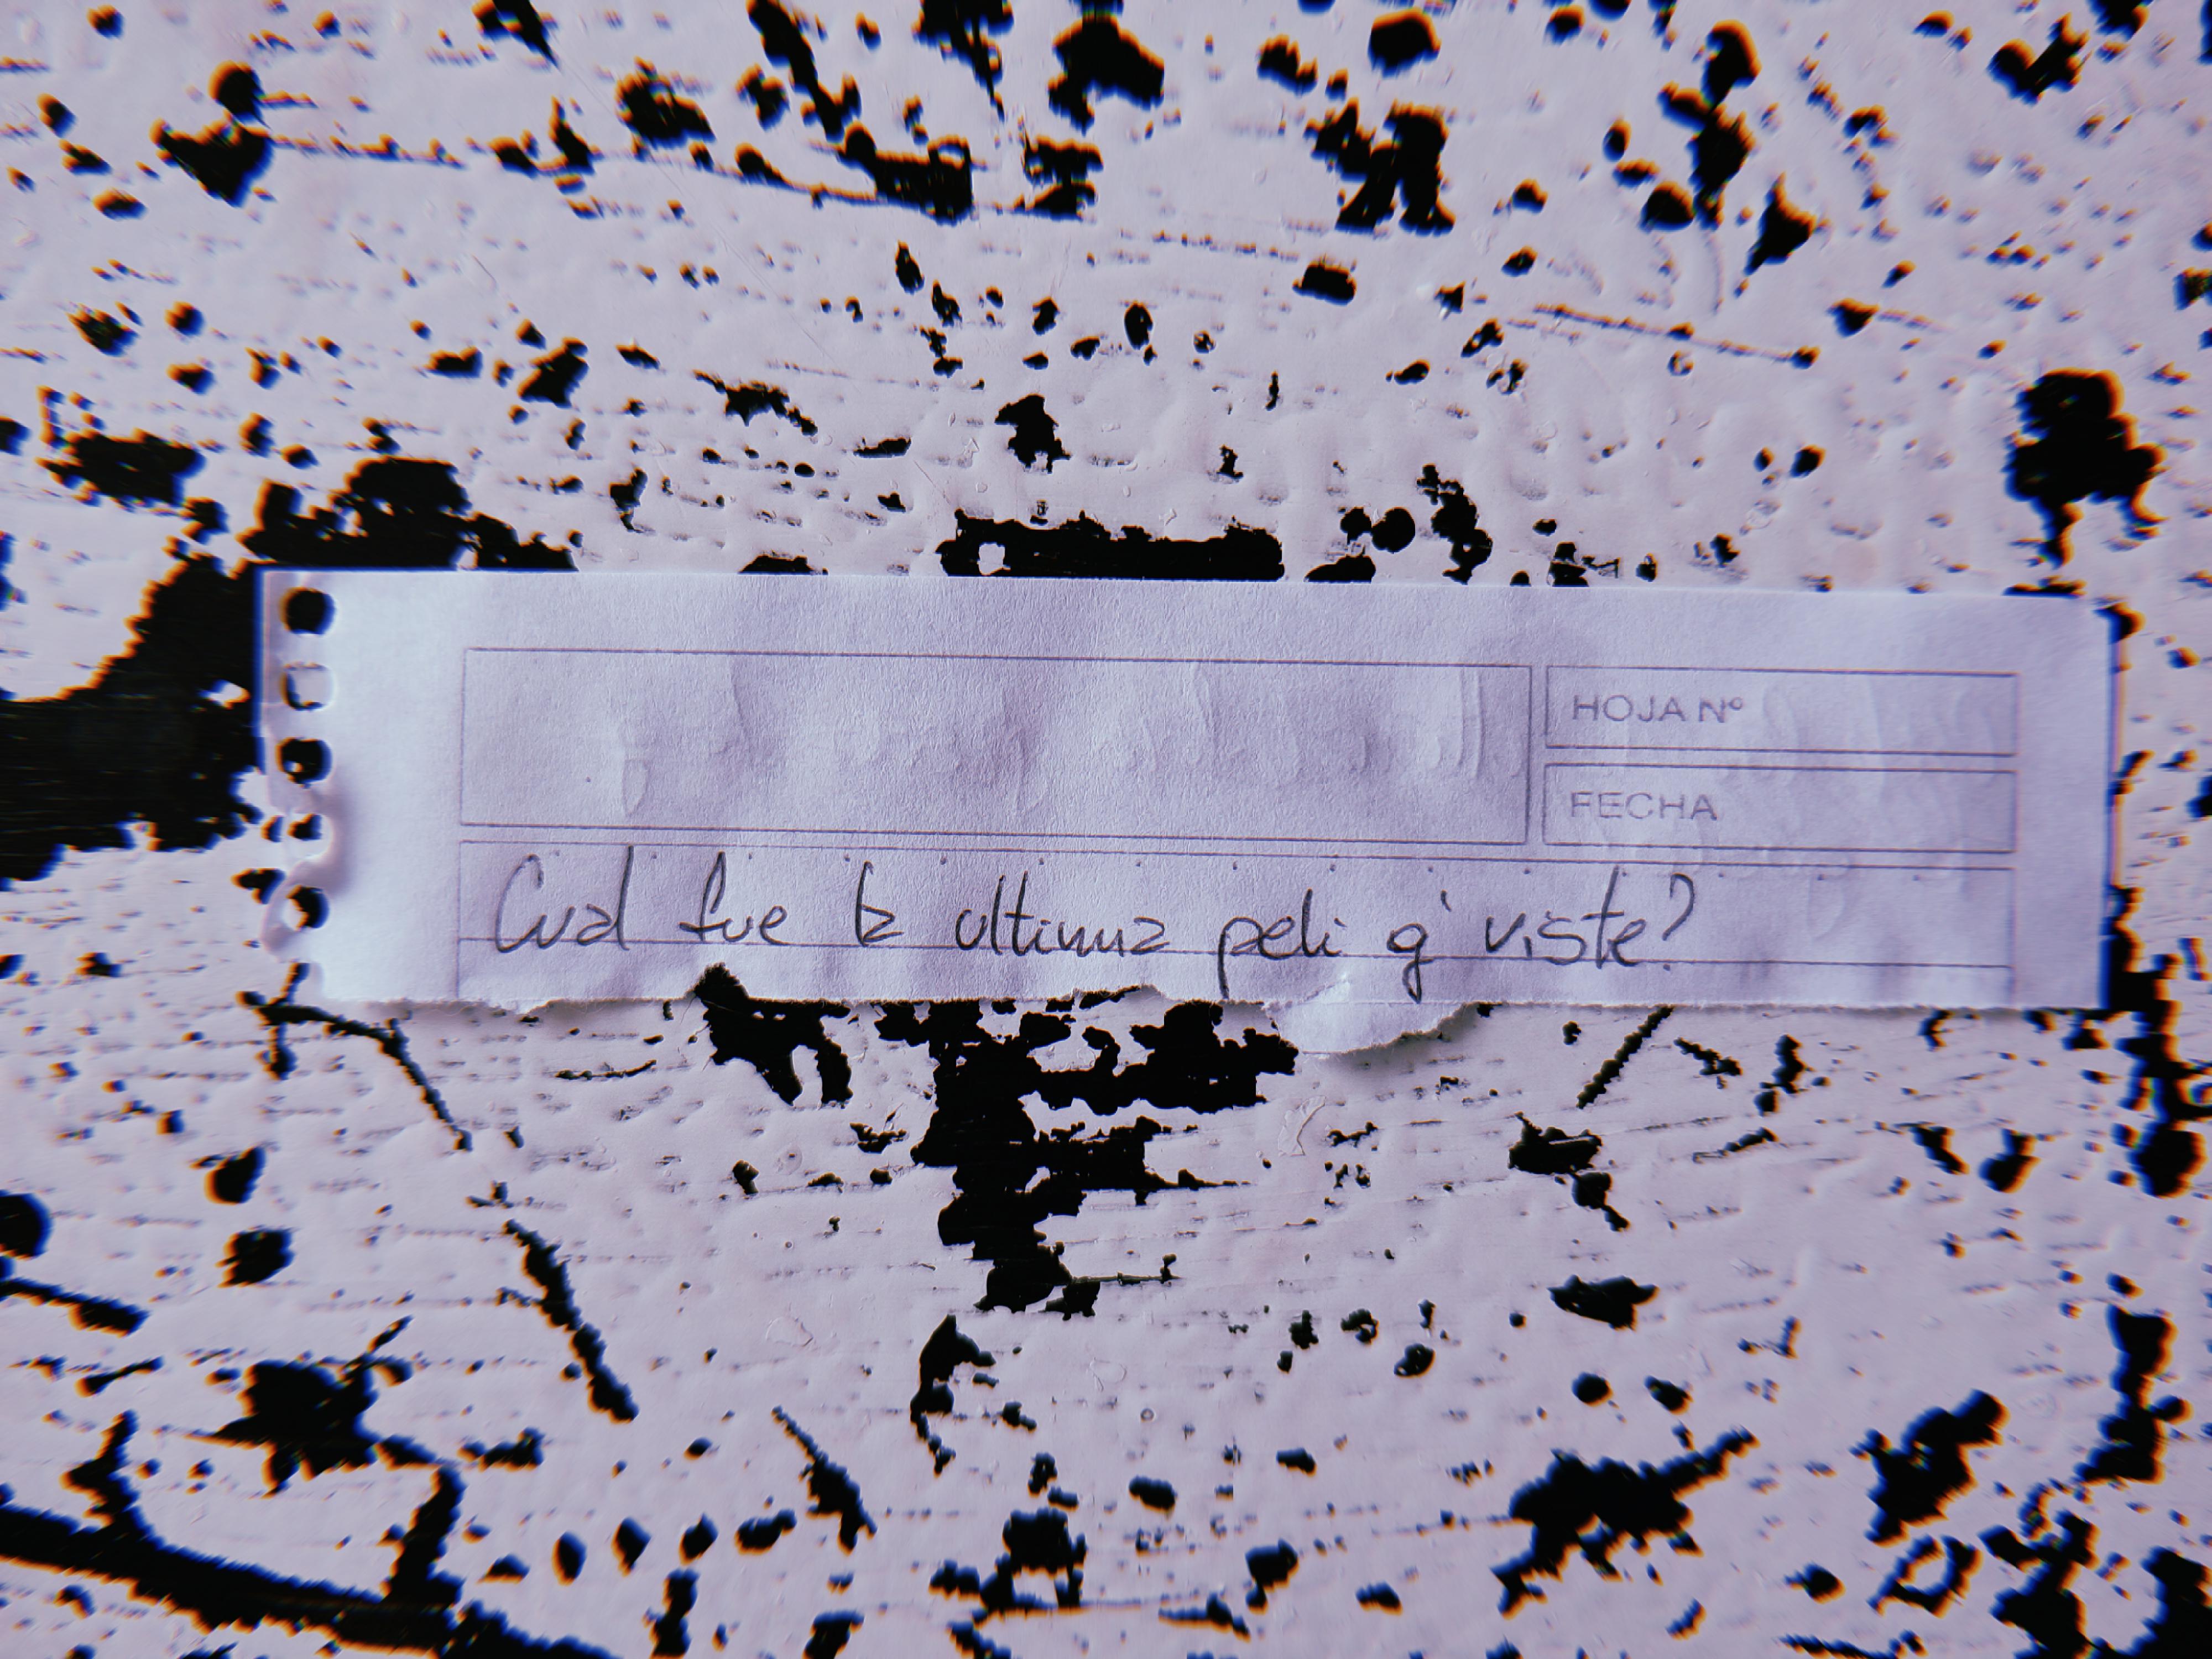 HOJA Nº
FECHA
Cual fue la ultima peli q' viste?